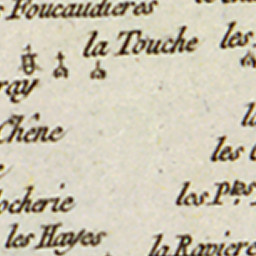 Foucaudieres
la Touche
les
Chêne
les
les Ptes
les Hayes
la Raviere